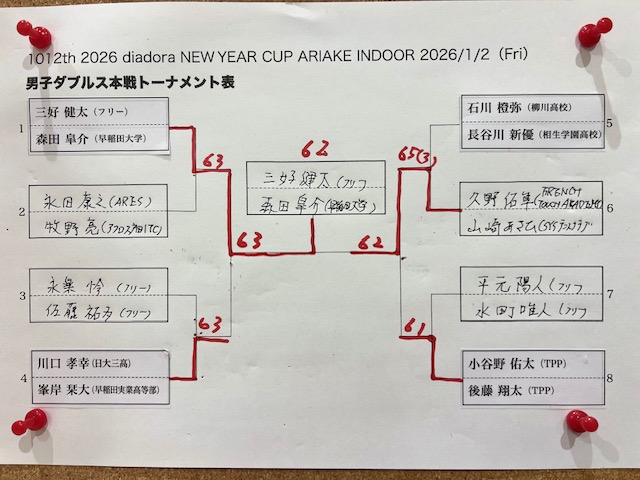 1012th 2026 diadora NEW YEAR CUP ARIAKE INDOOR 2026/1/2（Fri）
男子ダブルス本戦トーナメント表
1
三好 健太（フリー）
森田 皐介（早稲田大学）
2
永田 康之(ARES)
牧野 亮
3
永楽 怜（フリー）
佐藤 祐多（フリー）
4
川口 孝幸(日大三高)
峯岸 栞大(早稲田実業高等部)
63
63
63
62
三好 健太（フリー）
森田 皐介(早稲田大学)
65(3)
62
61
石川 橙弥（柳川高校）
長谷川 新優（相生学園高校）
5
久野 佑隼(TRENCH
山崎 あさひ
6
平元 陽人（フリー）
水町 唯人（フリー）
7
小谷野 佑太（TPP）
後藤 翔太（TPP）
8